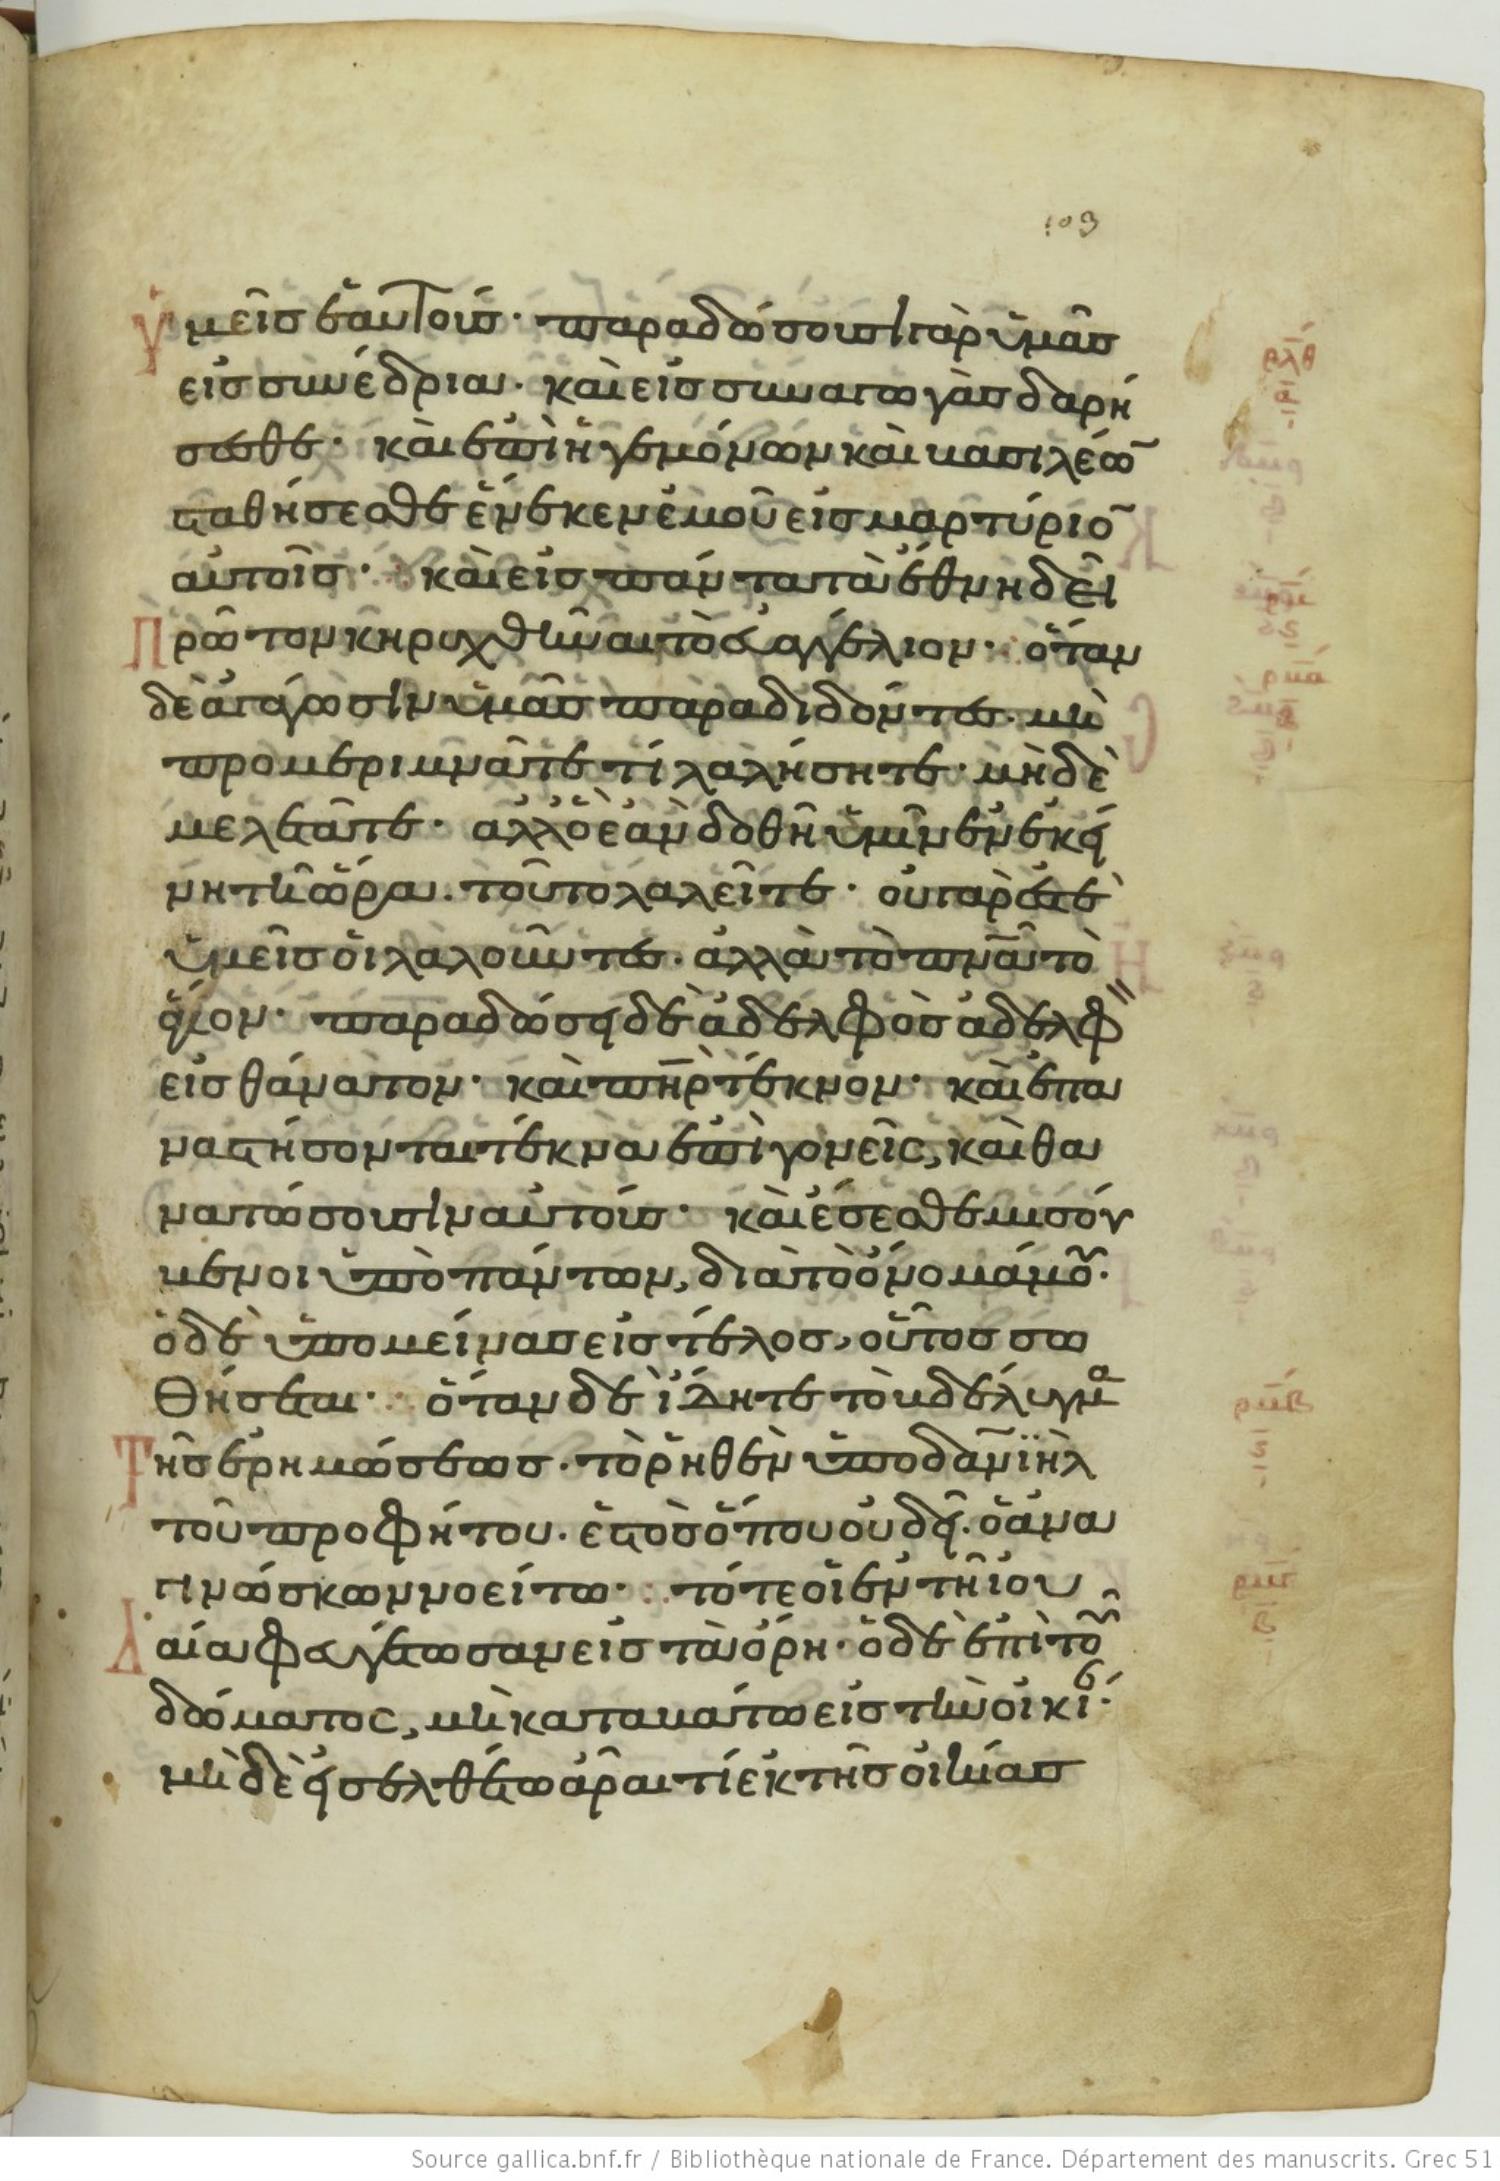 103
ὑμεῖς ἑαυτούς· παραδώσουσι γὰρ ὑμᾶς
εἰς συνέδρια· καὶ εἰς συναγωγὰς δαρή
σεσθε· καὶ ἐπὶ ἡγεμόνων καὶ βασιλέω̅
σταθήσεσθε ἕνεκεν ἐμοῦ εἰς μαρτύριο̅
αὐτοῖς· καὶ εἰς πάντα τὰ ἔθνη δεῖ
πρῶτον κηρυχθῆναι τὸ εὐαγγέλιον· ὅταν
δὲ ἀγάγωσιν ὑμᾶς παραδιδόντες· μὴ
προμεριμνᾶτε τί λαλήσητε· μηδὲ
μελετᾶτε· ἀλλ' ὃ ἐὰν δοθῇ ὑμῖν ἐν ἐκεί
νη τῇ ὥρα· τοῦτο λαλεῖτε· οὐ γάρ ἐστὲ
ὑμεῖς οἱ λαλοῦντες· ἀλλὰ τὸ πν̅α τὸ
ἅγιον· παραδώσει δὲ ἀδελφὸς ἀδελφ
εἰς θάνατον· καὶ πη̅ρ τέκνον· καὶ ἐπα
ναστήσονται τέκνα ἐπὶ γονεῖς, καὶ θα
νατώσουσιν αὐτούς· καὶ ἔσεσθε μισού
μενοι ὑπὸ πάντων, διὰ τὸ ὄνομά μου·
ὁ δὲ ὑπομείνας εἰς τέλος, οὗτος σω
θήσεται· ὅταν δὲ ἴδητε τὸ βδέλυγμα
τῆς ἐρημώσεως· τὸ ῥηθὲν ὑπὸ δανϊὴλ
τοῦ προφήτου· ἑστὸς ὅπου οὐ δεῖ· ὁ ἀνα
γινώσκων νοείτω· τότε οἱ ἐν τῇ ἰου
δαία φευγέτωσαν εἰς τὰ ὄρη· ὁ δὲ ἐπὶ τοῦ
δώματος, μὴ καταβάτω εἰς τὴν οἰκί·
μὴ δὲ εἰσελθέτω ἆραι τί ἐκ τῆς οἰκίας
Source gallica.bnf.fr / Bibliothèque nationale de France. Département des manuscrits. Grec 51